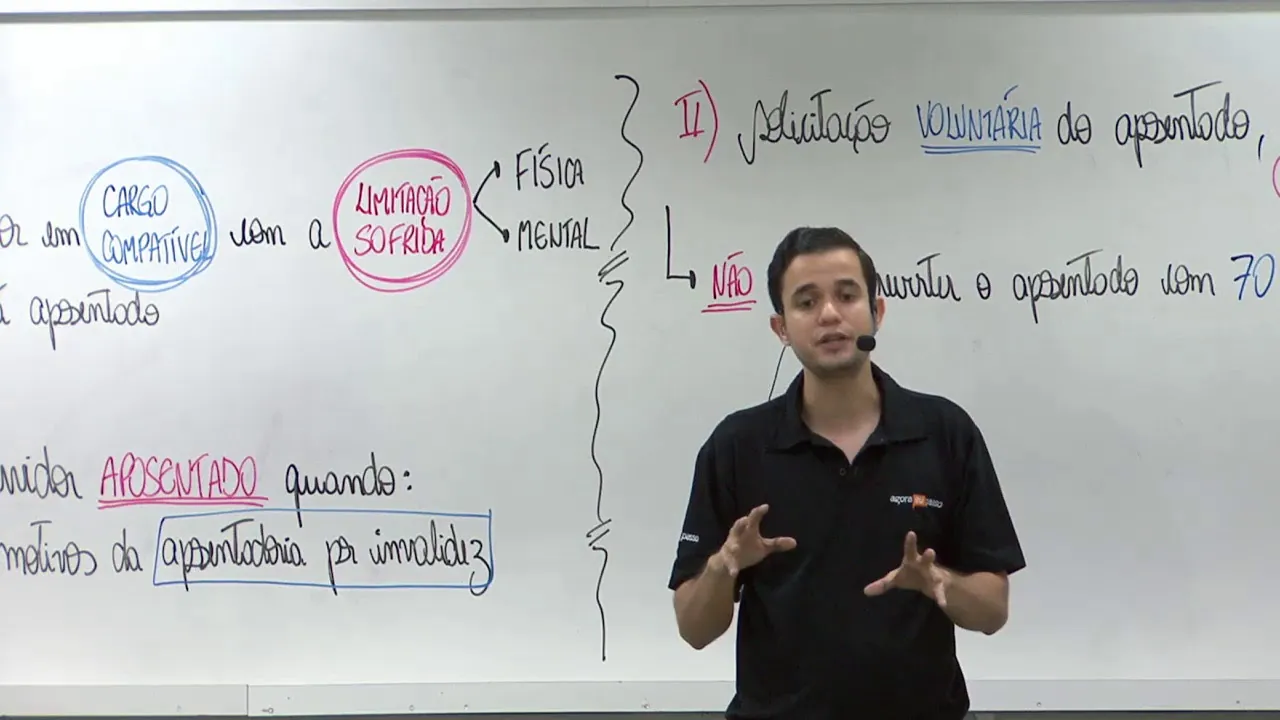 or em CARGO COMPATÍVEL com a LIMITAÇÃO SOFRIDA
FÍSICA
MENTAL
á aposentado
vidor APOSENTADO quando:
motivos da aposentadoria por invalidez
II) Solicitação VOLUNTÁRIA do aposentado,
NÃO reverter o aposentado com 70
agora eu passo
passo